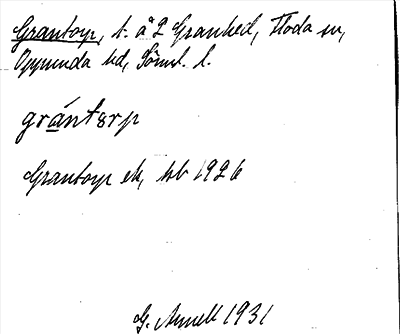 Grantorp, t. å 2 Granhed, Floda sn,
Oppunda hd, Sörml. l.
grántorp
Grantorp ek, hb 1926
G. Arnell 1931